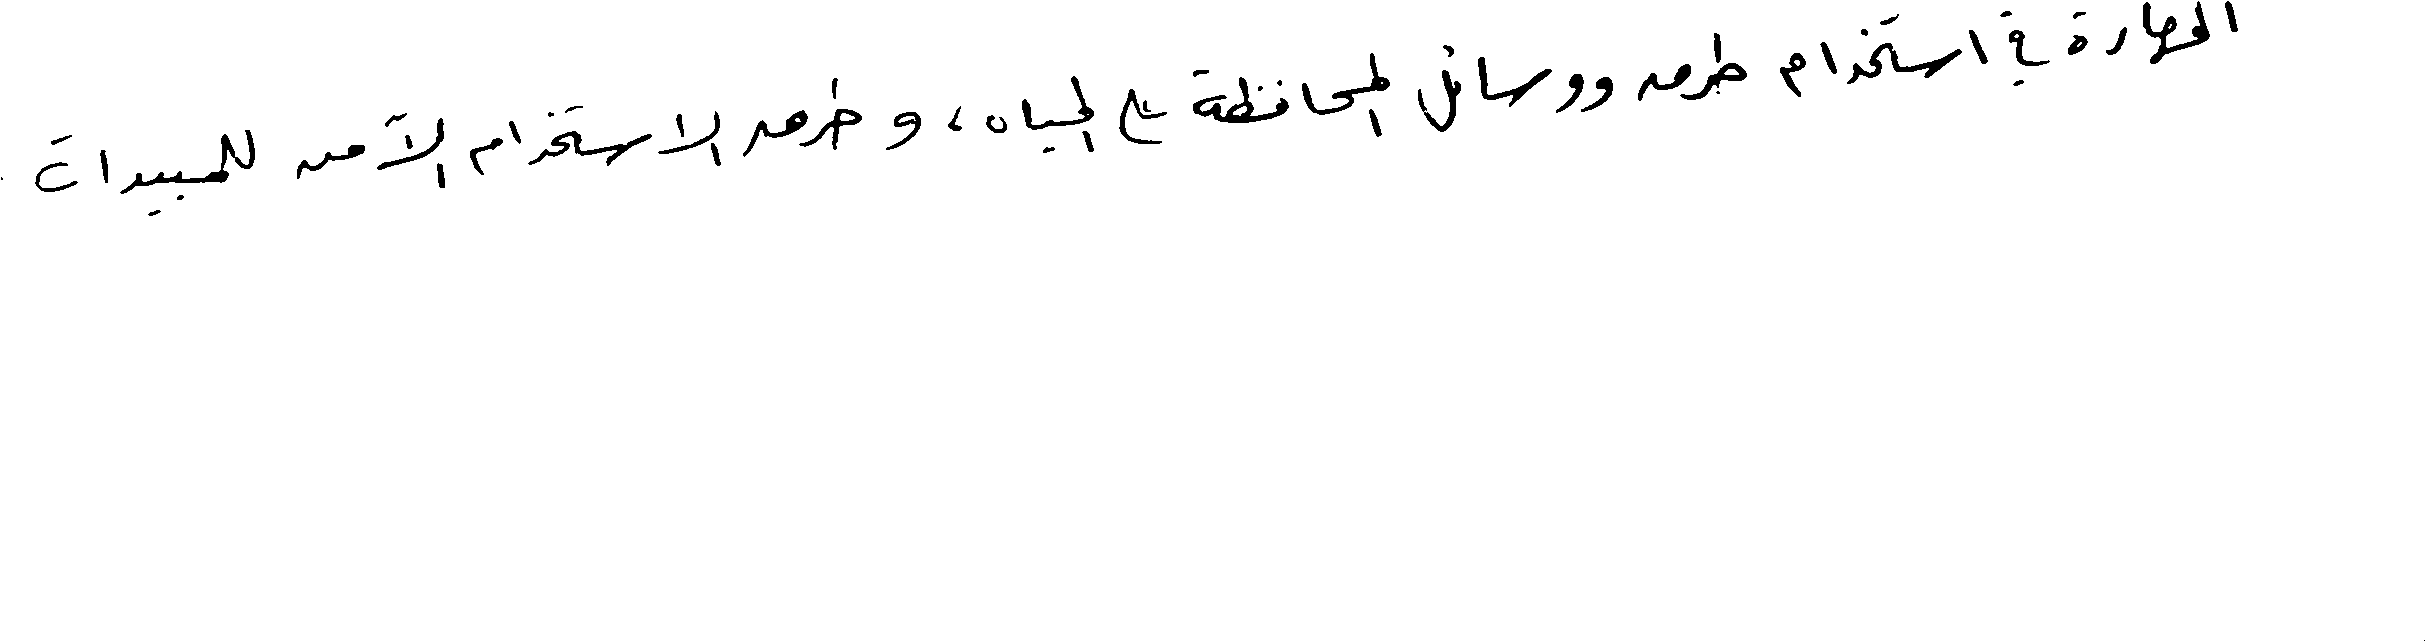 المهارة في استخدام طرق ووسائل المحافظة على المياه، وطرق الاستخدام الآمن للمبيدات